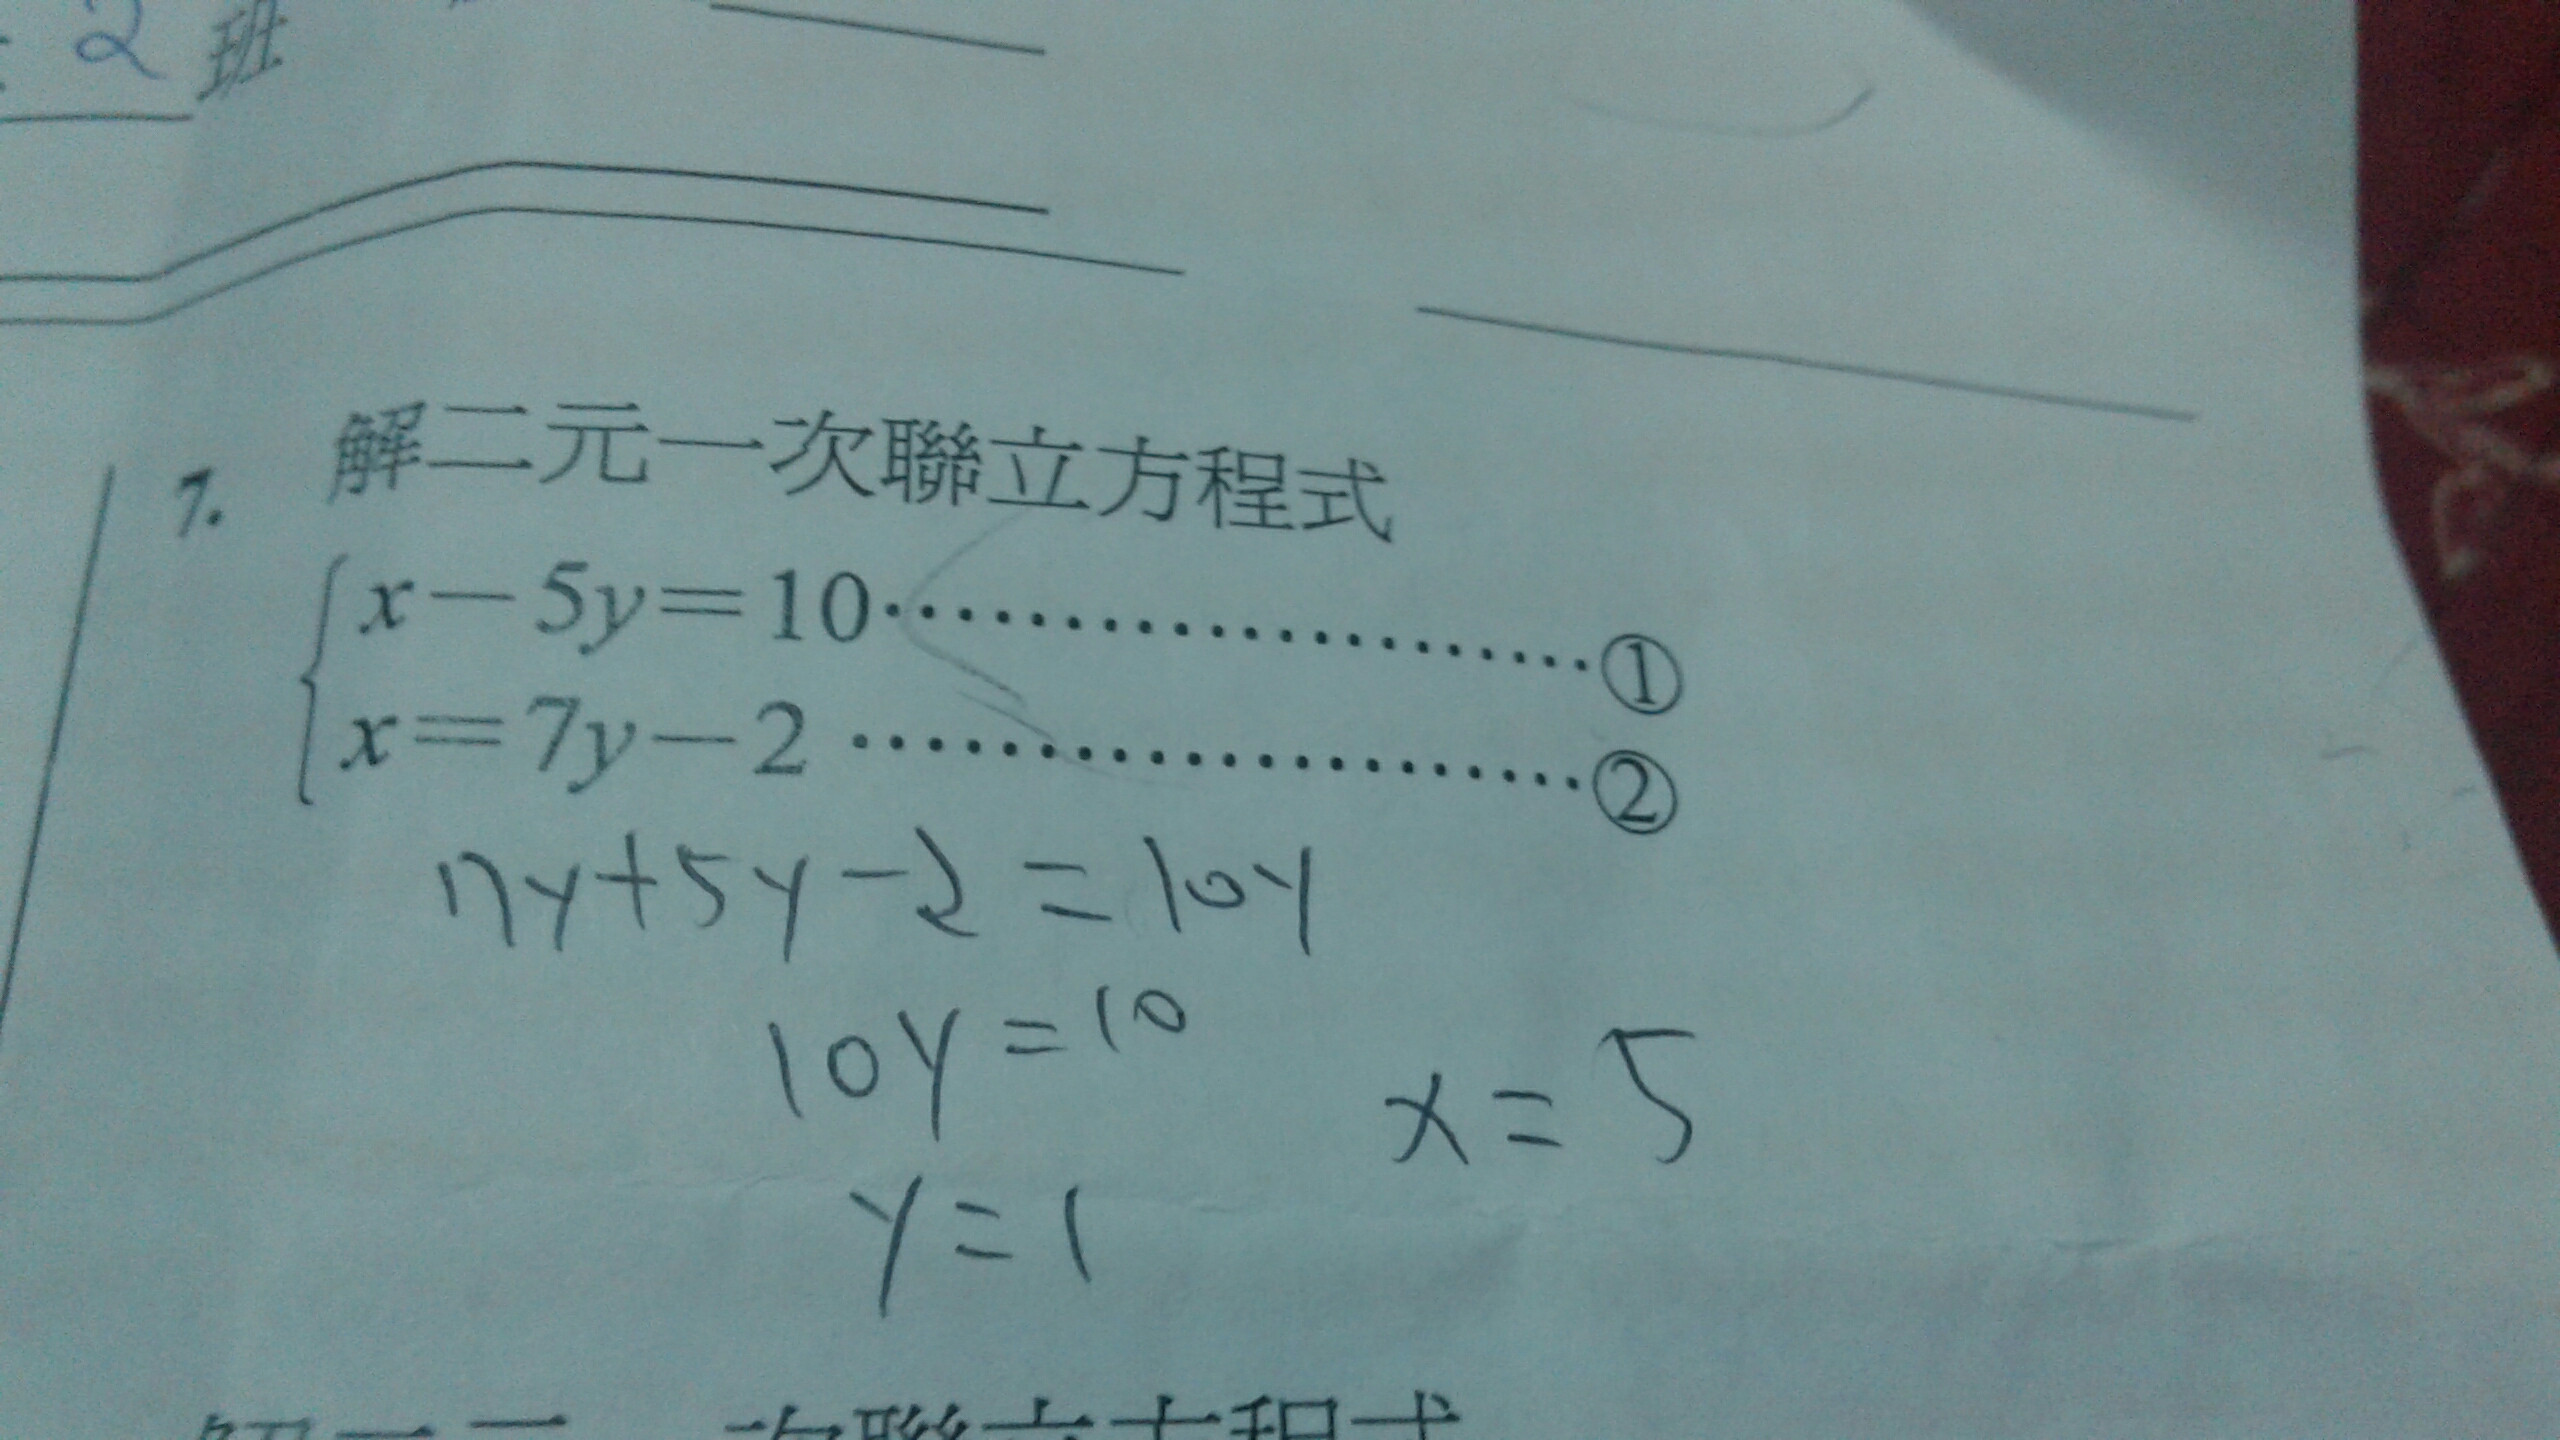 2 班
7. 解二元一次聯立方程式
x－5y＝10····················①
x＝7y－2 ····················②
7y+5y-2=10y
10y=10
x=5
y=1